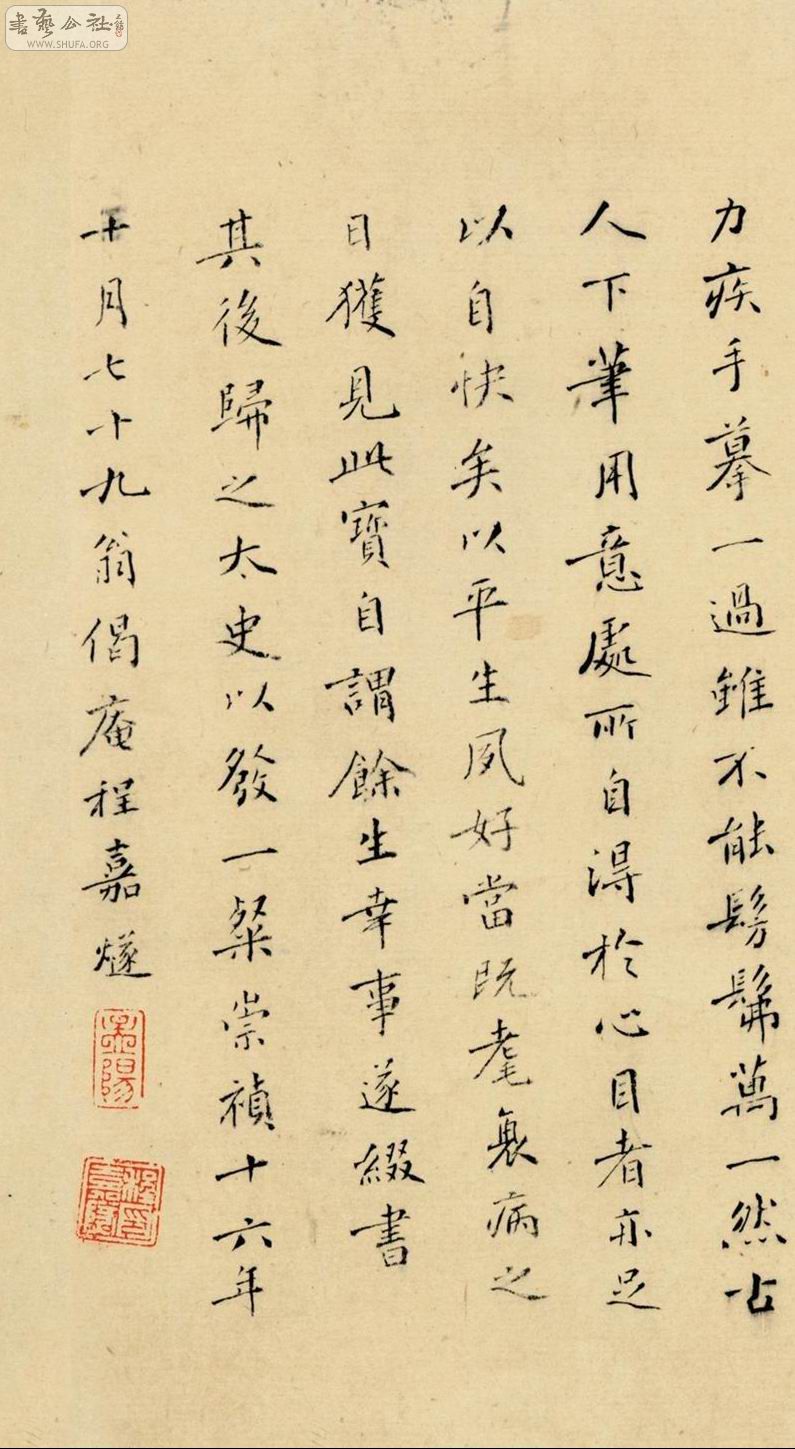 力疾手摹一過雖不能髣髴萬一然古
人下筆用意處所自得於心目者亦足
以自快矣以平生夙好當既耄衰病之
日獲見此寶自謂餘生幸事遂綴書
其後歸之太史以發一粲崇禎十六年
十月七十九翁偈庵程嘉燧
孟陽
書藝公社
WWW.SHUFA.ORG